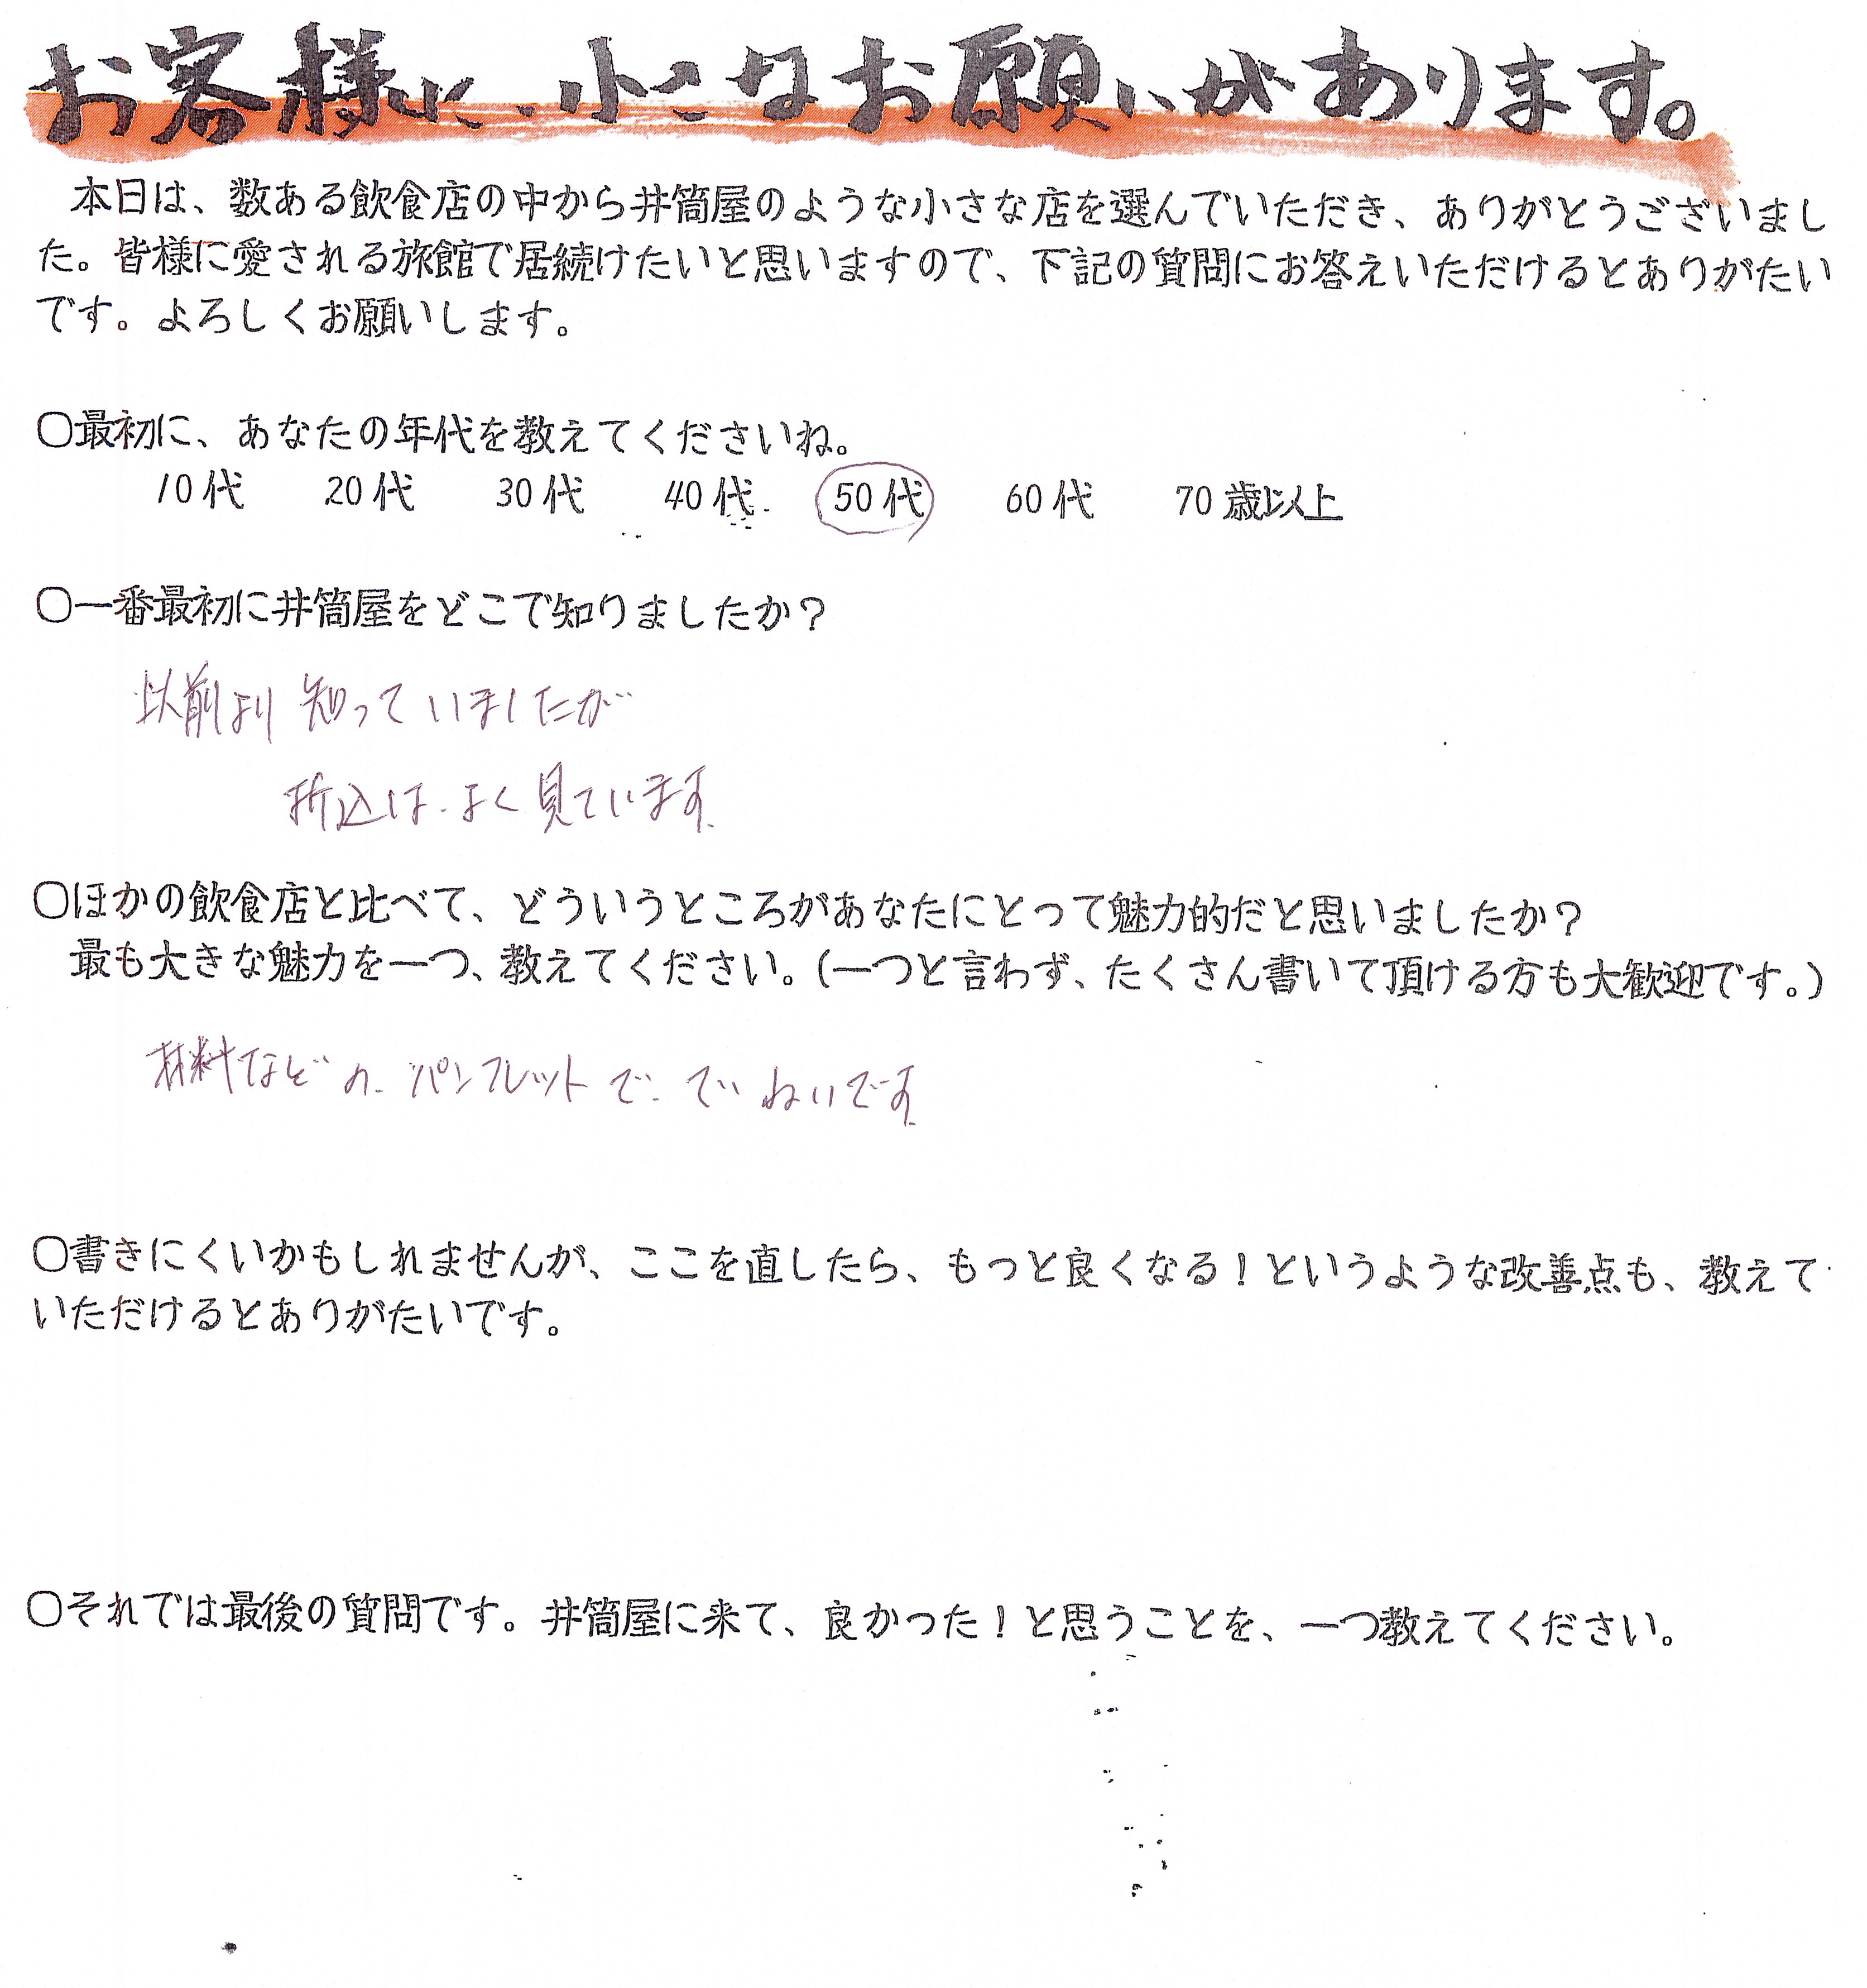 お客様に、小さなお願いがあります。
本日は、数ある飲食店の中から井筒屋のような小さな店を選んでいただき、ありがとうございまし
た。皆様に愛される旅館で居続けたいと思いますので、下記の質問にお答えいただけるとありがたい
です。よろしくお願いします。
○最初に、あなたの年代を教えてくださいね。
10代 20代 30代 40代 50代 60代 70歳以上
○一番最初に井筒屋をどこで知りましたか？
以前より知っていましたが
折込は、よく見ています。
○ほかの飲食店と比べて、どういうところがあなたにとって魅力的だと思いましたか？
最も大きな魅力を一つ、教えてください。（一つと言わず、たくさん書いて頂ける方も大歓迎です。）
材料などの、パンフレットで、ていねいです。
○書きにくいかもしれませんが、ここを直したら、もっと良くなる！というような改善点も、教えて
いただけるとありがたいです。
○それでは最後の質問です。井筒屋に来て、良かった！と思うことを、一つ教えてください。